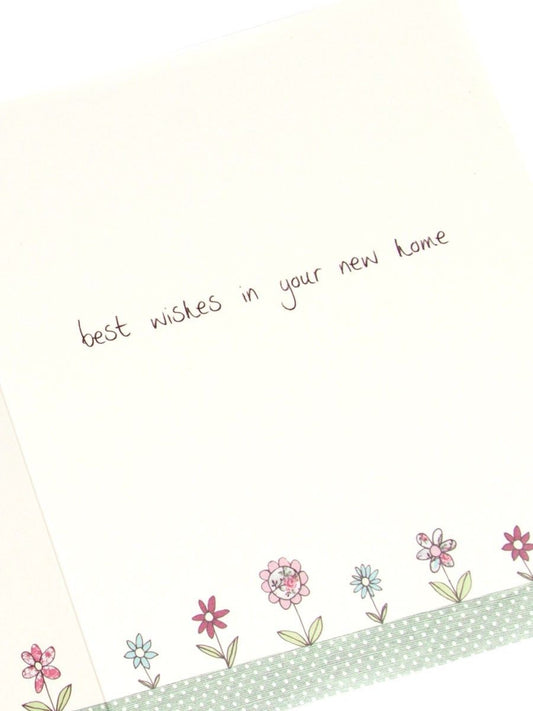 best wishes in your new home